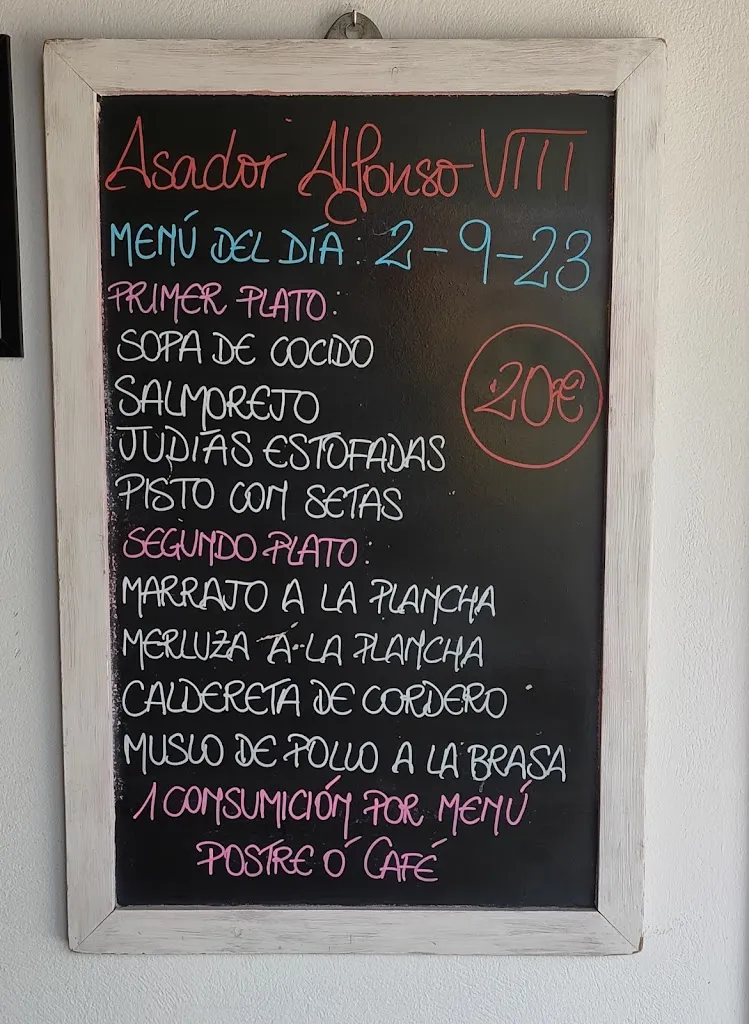 Asador Alfonso VIII
MENÚ DEL DÍA: 2-9-23
PRIMER PLATO:
SOPA DE COCIDO
20€
SALMOREJO
JUDÍAS ESTOFADAS
PISTO CON SETAS
SEGUNDO PLATO:
MARRAJO A LA PLANCHA
MERLUZA A LA PLANCHA
CALDERETA DE CORDERO
MUSLO DE POLLO A LA BRASA
1 CONSUMICIÓN POR MENÚ
POSTRE Ó CAFÉ